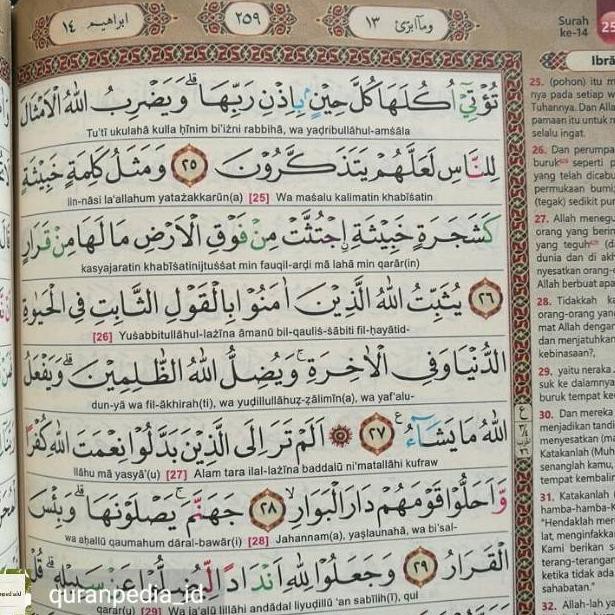 ابراهيم ١٤
٢٥٩
وما ابرئ ١٣
Surah
ke-14
تُؤْتِيْٓ اُكُلَهَا كُلَّ حِيْنٍ ۢبِاِذْنِ رَبِّهَاۗ وَيَضْرِبُ اللّٰهُ الْاَمْثَالَ
Tu'tī ukulahā kulla ḥīnim bi'iżni rabbihā, wa yaḍribullāhul-amṡāla
لِلنَّاسِ لَعَلَّهُمْ يَتَذَكَّرُوْنَ ٢٥ وَمَثَلُ كَلِمَةٍ خَبِيْثَةٍ
lin-nāsi la'allahum yatażakkarūn(a) [25] Wa maṡalu kalimatin khabīṡatin
كَشَجَرَةٍ خَبِيْثَةِ ِۨاجْتُثَّتْ مِنْ فَوْقِ الْاَرْضِ مَا لَهَا مِنْ قَرَارٍ
kasyajaratin khabīṡatinijtuṡṡat min fauqil-arḍi mā lahā min qarār(in)
٢٦ يُثَبِّتُ اللّٰهُ الَّذِيْنَ اٰمَنُوْا بِالْقَوْلِ الثَّابِتِ فِى الْحَيٰوةِ
[26] Yuṡabbitullāhul-lażīna āmanū bil-qauliṡ-ṡābiti fil-ḥayātid-
الدُّنْيَا وَفِى الْاٰخِرَةِۚ وَيُضِلُّ اللّٰهُ الظّٰلِمِيْنَۗ وَيَفْعَلُ
dun-yā wa fil-ākhirah(ti), wa yuḍillullāhuẓ-ẓālimīn(a), wa yaf'alu-
اللّٰهُ مَا يَشَاۤءُ ࣖ ٢٧ ۞ اَلَمْ تَرَ اِلَى الَّذِيْنَ بَدَّلُوْا نِعْمَتَ اللّٰهِ كُفْرًا
llāhu mā yasyā'(u) [27] Alam tara ilal-lażīna baddalū ni'matallāhi kufraw
وَّاَحَلُّوْا قَوْمَهُمْ دَارَ الْبَوَارِۙ ٢٨ جَهَنَّمَۚ يَصْلَوْنَهَاۗ وَبِئْسَ
wa aḥallū qaumahum dāral-bawār(i) [28] Jahannam(a), yaṣlaunahā, wa bi'sal-
الْقَرَارُ ٢٩ وَجَعَلُوْا لِلّٰهِ اَنْدَادًا لِّيُضِلُّوْا عَنْ سَبِيْلِهٖۗ قُلْ
qarār(u) [29] Wa ja'alū lillāhi andādal liyuḍillū 'an sabīlih(ī), qul
Ibrā
25. (pohon) itu m
nya pada setiap w
Tuhannya. Dan Alla
pamaan itu untuk m
selalu ingat.
26. Dan perumpa
buruk seperti p
yang telah dicabu
permukaan bum
(tegak) sedikit pun
27. Allah menegu
orang yang berim
yang teguh (da
dunia dan di akh
nyesatkan orang-
Allah berbuat apa
28. Tidakkah k
orang-orang yang
mat Allah dengan
dan menjatuhkan
kebinasaan?,
29. yaitu neraka
suk ke dalamnya
buruk tempat ke
30. Dan mereka
menjadikan tandi
menyesatkan (ma
Katakanlah (Muh
senanglah kamu,
tempat kembalim
31. Katakanlah
hamba-hamba-K
"Hendaklah me
lat, menginfakkan
Kami berikan s
terang-terangan
ketika tidak ada
sahabatan."
32. Allah-lah ya
quranpedia_id